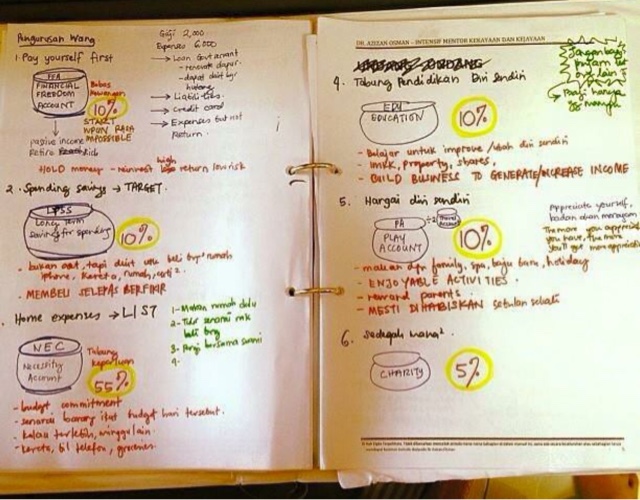 Pengurusan Wang
Gaji 2,000
Expenses 6,000
1. Pay yourself first
→ Loan Govt grant
- renovate dapur
- dapat duit by hutang
→ Liabilities
→ Credit card
→ Expenses but not return.
FFA
FINANCIAL
FREEDOM
ACCOUNT
Bebas
Kewangan
10%
START
UPON RASA
IMPOSSIBLE
passive income
Retire Rich
HOLD money - reinvest high return low risk
2. Spending savings → TARGET.
LTSS
Long Term
Saving for spending
10%
- bukan aset, tapi duit utk beli
iphone, kereta, rumah, cuti².
- MEMBELI SELEPAS BERFIKIR
Home expenses → LIST
1- Makan rumah dulu
2- Tulis senarai nak
beli brg
3- Pergi bersama suami
4-
NEC
Necessity
Account
Tabung
Keperluan
55%
- budget commitment
- senarai barang ikut budget hari tersebut.
- kalau terlebih, tinggalkan.
- kereta, bil telefon, groceries
DR. AZIZAN OSMAN – INTENSIF MENTOR KEKAYAAN DAN KEJAYAAN
Jangan bagi
pinjam
4. Tabung Pendidikan Diri Sendiri
EDU
EDUCATION
10%
- Belajar untuk improve/ubah diri sendiri
- property, shares,
- BUILD BUSINESS TO GENERATE/INCREASE INCOME
5. Hargai diri sendiri
PA
PLAY
ACCOUNT
÷2
Travel
Account
10%
Appreciate yourself,
badan akan merayap
The more you appreciate
you have, the more
you'll get more appreciate
- makan dgn family, spa, baju baru, holiday
- ENJOYABLE ACTIVITIES.
- reward parents.
- MESTI DIHABISKAN sebulan sekali
6. Sedeqah wang².
CHARITY
5%